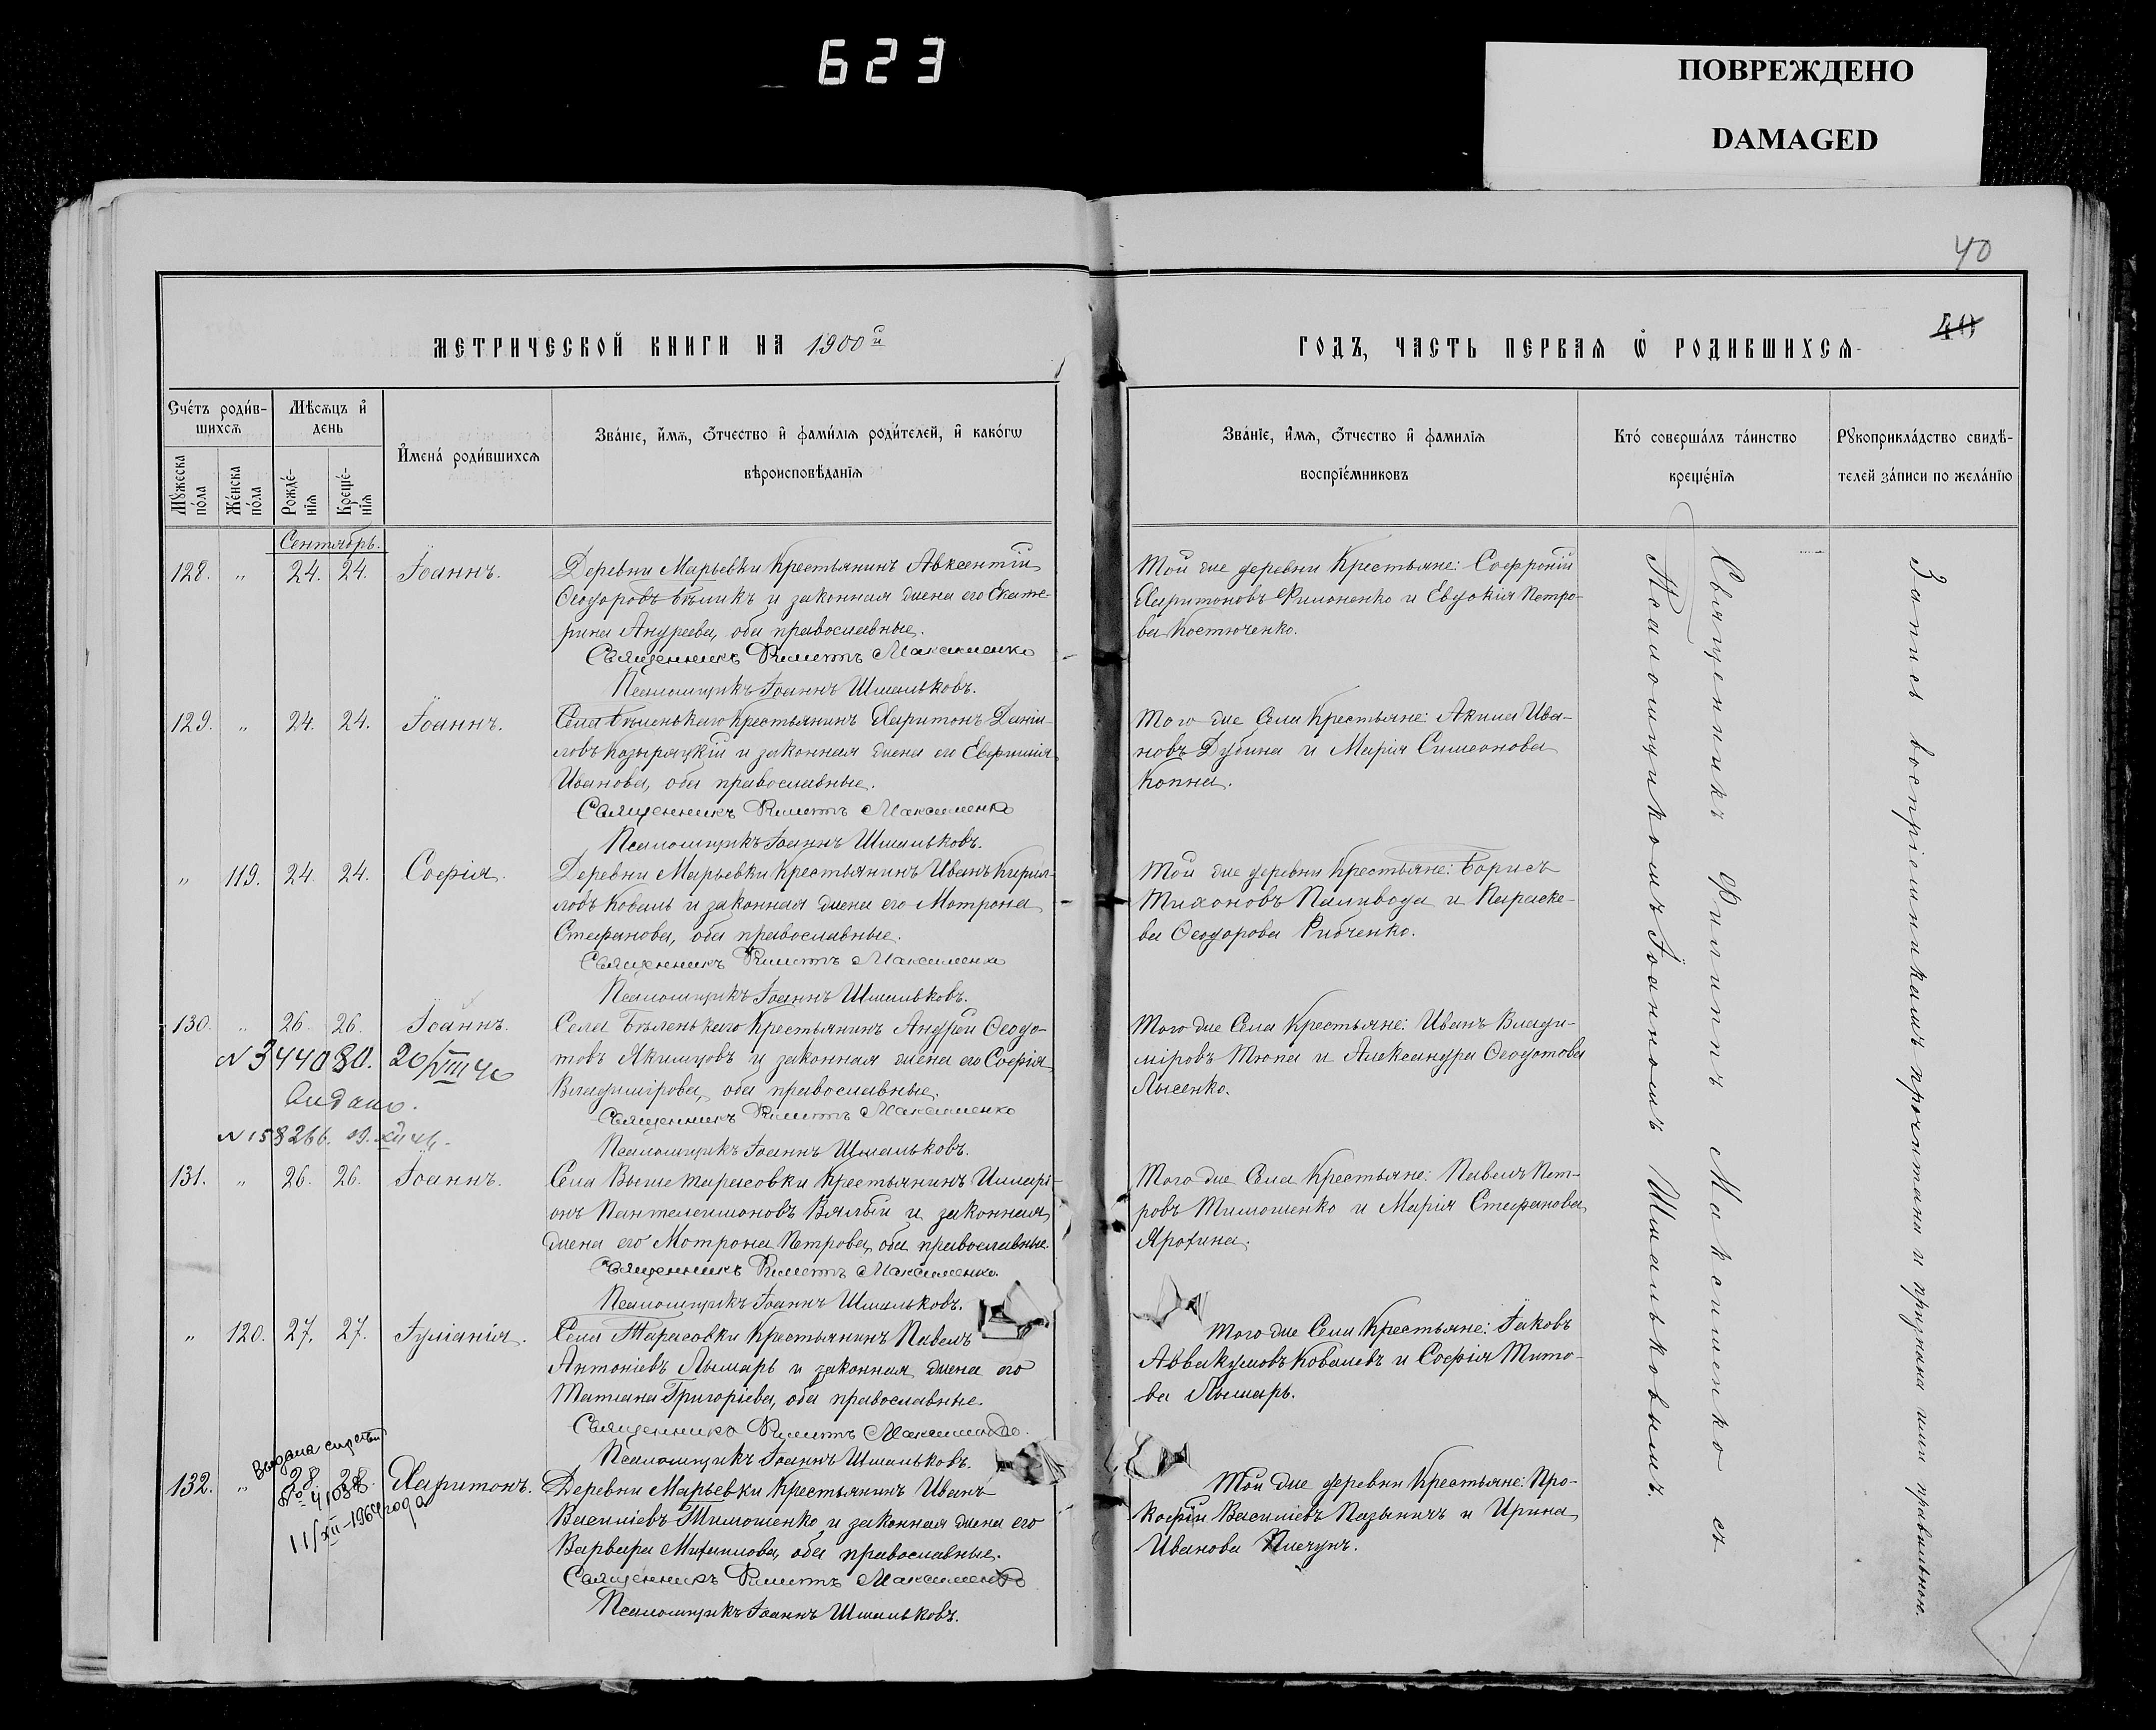 623
ПОВРЕЖДЕНО
DAMAGED
40
40
МЕТРИЧЕСКОЙ КНИГИ НА 1900й
ГОДЪ, ЧАСТЬ ПЕРВАЯ Ѡ РОДИВШИХСЯ
Счетъ родив-
шихся
Мужеска пола
Женска пола
Мѣсяцъ и
день
Рожде-
нія
Креще-
нія
Имена родившихся
Званіе, имя, отчество и фамилія родителей, и какогѡ
вѣроисповѣданія
Званіе, имя, отчество и фамилія
воспріемниковъ
Кто совершалъ таинство
крещенія
Рукоприкладство свидѣ-
телей записи по желанію
Сентябрь.
128. " 24. 24. Іоаннъ. Деревни Марьевки Крестьянинъ Авксентій
Ѳеодоровъ Бѣликъ и законная жена его Екате-
рина Андреева, оба православные.
Священникъ Филиппъ Максименко
Псаломщикъ Іоаннъ Шмальковъ.
Той же деревни Крестьяне: Софроній
Харитоновъ Филоненко и Евдокія Петро-
ва Костюченко.
129. " 24. 24. Іоаннъ. Села Бѣленькаго Крестьянинъ Харитонъ Даніи-
ловъ Козыряцкій и законная жена его Евфимія
Иванова, оба православные.
Священникъ Филиппъ Максименко
Псаломщикъ Іоаннъ Шмальковъ.
Того же Села Крестьяне: Акила Ива-
новъ Дубина и Марія Симеонова
Копна.
" 119. 24. 24. Софія. Деревни Марьевки Крестьянинъ Иванъ Кирил-
ловъ Коваль и законная жена его Мотрона
Стефанова, оба православные.
Священникъ Филиппъ Максименко
Псаломщикъ Іоаннъ Шмальковъ.
Той же деревни Крестьяне: Борисъ
Тихоновъ Паливода и Параске-
ва Ѳеодорова Рибченко.
130. " 26. 26. Іоаннъ. Села Бѣленькаго Крестьянинъ Андрей Ѳеодо-
товъ Якимцовъ и законная жена его Софія
Владимірова, оба православные.
Священникъ Филиппъ Максименко
Псаломщикъ Іоаннъ Шмальковъ.
N 344080. 20/VIII 46
Видано.
N 158266.
Того же Села Крестьяне: Иванъ Влади-
міровъ Тюпа и Александра Ѳеодотова
Лысенко.
131. " 26. 26. Іоаннъ. Села Вышетарасовки Крестьянинъ Иларі-
онъ Пантелеимоновъ Вялый и законная
жена его Мотрона Петрова, оба православные.
Священникъ Филиппъ Максименко.
Псаломщикъ Іоаннъ Шмальковъ.
Того же Села Крестьяне: Павелъ Пет-
ровъ Тимошенко и Марія Стефанова
Ярохина.
" 120. 27. 27. Іуліанія. Села Тарасовки Крестьянинъ Павелъ
Антоніевъ Лымарь и законная жена его
Татіана Григоріева, оба православные.
Священникъ Филиппъ Максименко.
Псаломщикъ Іоаннъ Шмальковъ.
Того же Села Крестьяне: Іаковъ
Аввакумовъ Ковалевъ и Софія Тито-
ва Лымарь.
Выдана
№ 41038
11/XII-1964 года
132. " 28. 28. Харитонъ. Деревни Марьевки Крестьянинъ Иванъ
Василіевъ Тимошенко, и законная жена его
Варвара Михаилова, оба православные.
Священникъ Филиппъ Максименко
Псаломщикъ Іоаннъ Шмальковъ.
Той же деревни Крестьяне: Про-
кофій Василіевъ Пазыничъ и Ирина
Иванова Плечунъ.
Священникъ Филиппъ Максименко съ
Псаломщикомъ Іоанномъ Шмальковымъ.
Запись воспріемникамъ прочитана и признана ими правильною.